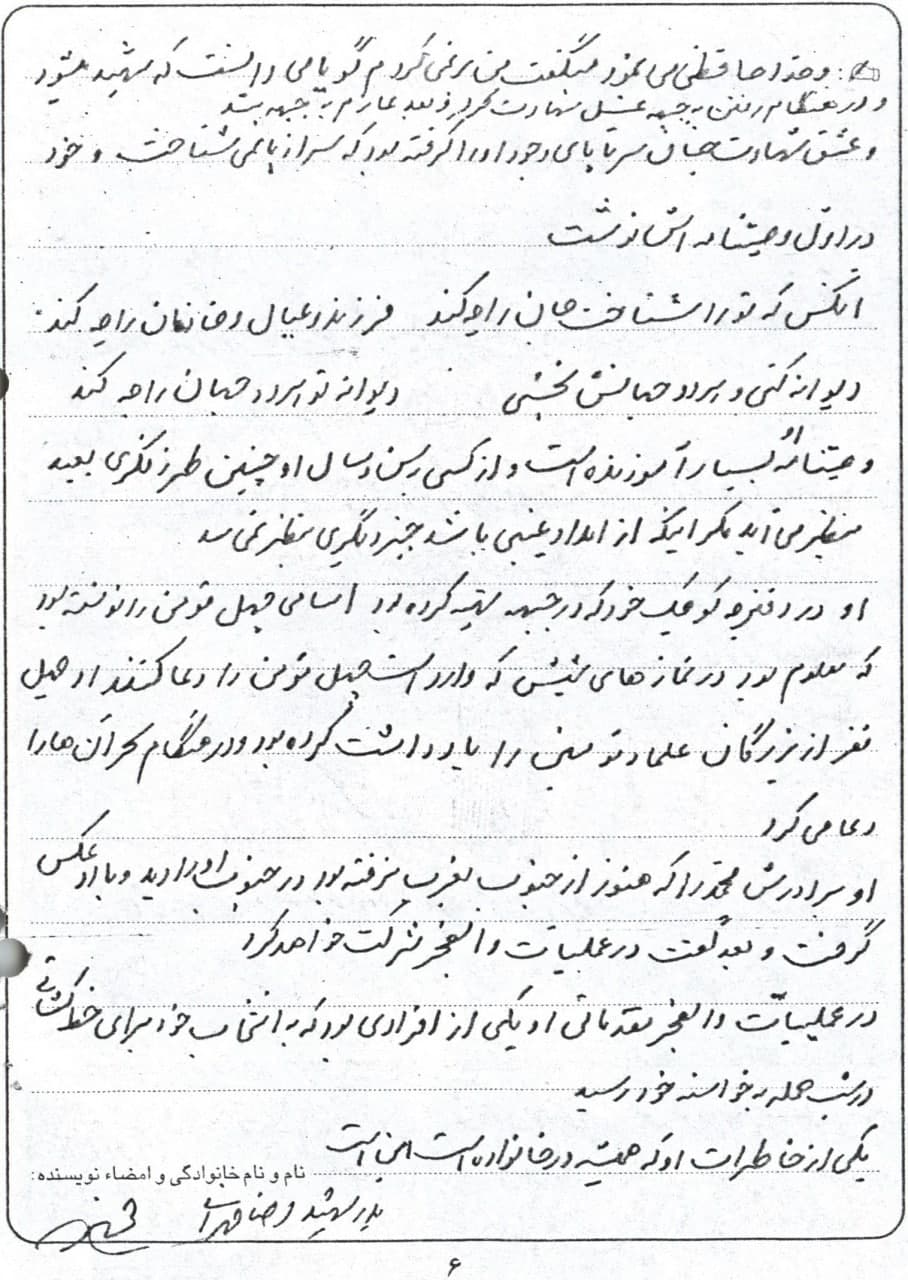 و خداحافظی می نمود میگفت من برنمی گردم گویا می دانست که شهید میشود
و در هنگام رفتن به جبهه غسل شهادت کرد و بعد عازم به جبهه شد
و عشق شهادت چنان سرتاپای وجود او را گرفته بود که سر از پا نمی شناخت و خود
در اول وصیتنامه اش نوشت
آنکس که تو را شناخت جان را چه کند فرزند و عیال و خانمان را چه کند
دیوانه کنی و هر دو جهانش بخشی دیوانه تو هر دو جهان را چه کند
وصیتنامه او بسیار آموزنده است و از کسی بسن و سال او چنین طرز فکری بعید
بنظر می آید مگر اینکه از امداد غیبی باشد چیز دیگری بنظر نمی رسد
او در دفترچه کوچک خود که در جبهه تهیه کرده بود اسامی چهل مؤمن را نوشته بود
که معلوم بود در نمازهای شبش که وارد است چهل مؤمن را دعا کنند او چهل
نفر از بزرگان علما و مؤمنین را یادداشت کرده بود و در هنگام سحر آن ها را
دعا می کرد
او برادرش محمد را که هنوز از جنوب بغرب نرفته بود در جنوب او را دید و با او عکس
گرفت و بعد گفت در عملیات والفجر شرکت خواهد کرد
در عملیات والفجر مقدماتی او یکی از افرادی بود که به انتخاب خود برای خط شکنی
در شب حمله به خواسته خود رسید
یکی از خاطرات او که همیشه در خانواده است این است
نام و نام خانوادگی و امضاء نویسنده:
پدر شهید
۶